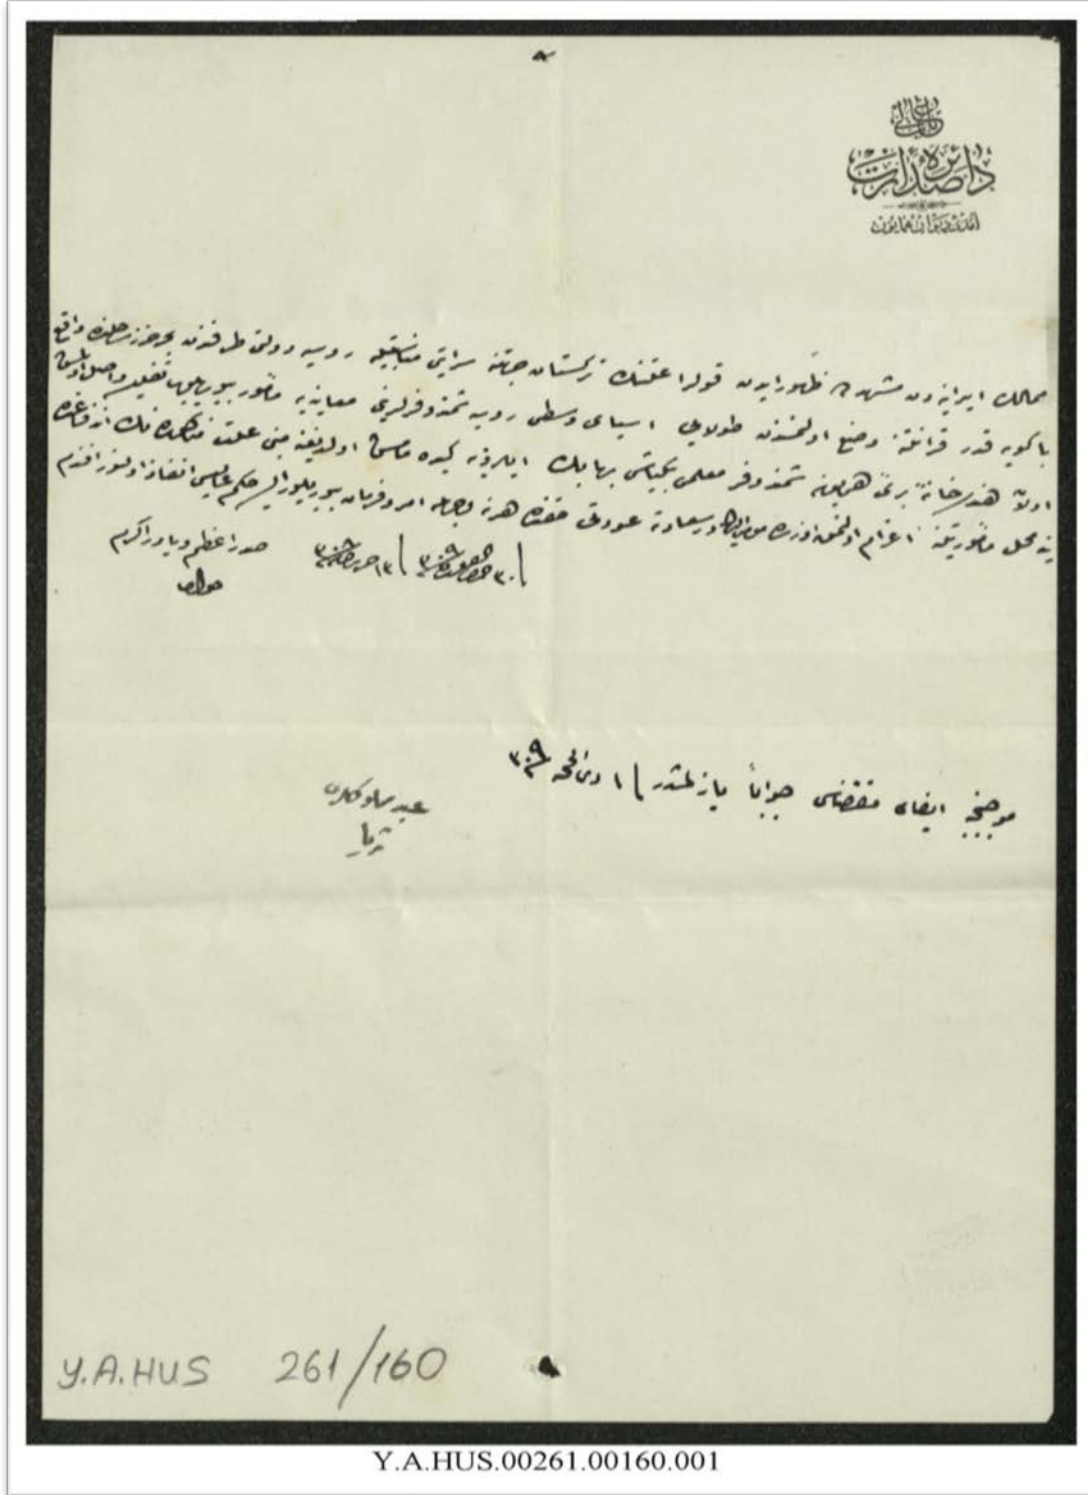 باب عالی
دائرۀ صدارت
آمدئ دیوان همایون
ممالک ایرانیه دن مشهدده ظهور ایدن قولرا علتنك تركستان جهتنه سرایتی مناسبتیله روسیه دولتی طرفندن بحر خزر ساحلنده واقع
باكویه قدر قرانتنه وضع اولنمسندن طولایی آسیای وسطی روسیه شمندوفرلرینی معاینه یه مأمور بیوریلوب تفلیسه واصل اولمش
اولان هندسه خانۀ بری همایون شمندوفر معلمی بكباشی بها بك ایلرویه كیده مامش اولدیغنه مبنی علت مندفع اولدقده
ینه محل مأموریتنه اعزام اولنمق اوزره درسعادته عودتی حقنده هر نه وجهله امر و فرمان بیوریلور ایسه حكم عالیسی انفاذ اولنور افندم
۳۰۹ ۳۰۸
صدر اعظم و یاور اكرم
جواد
موجبنجه ایفای مقتضاسی جواباً یازلمشدر ۱ ذی الحجه ۳۰۹
عبد مملوكلری
ثریا
Y.A.HUS 261/160
Y.A.HUS.00261.00160.001